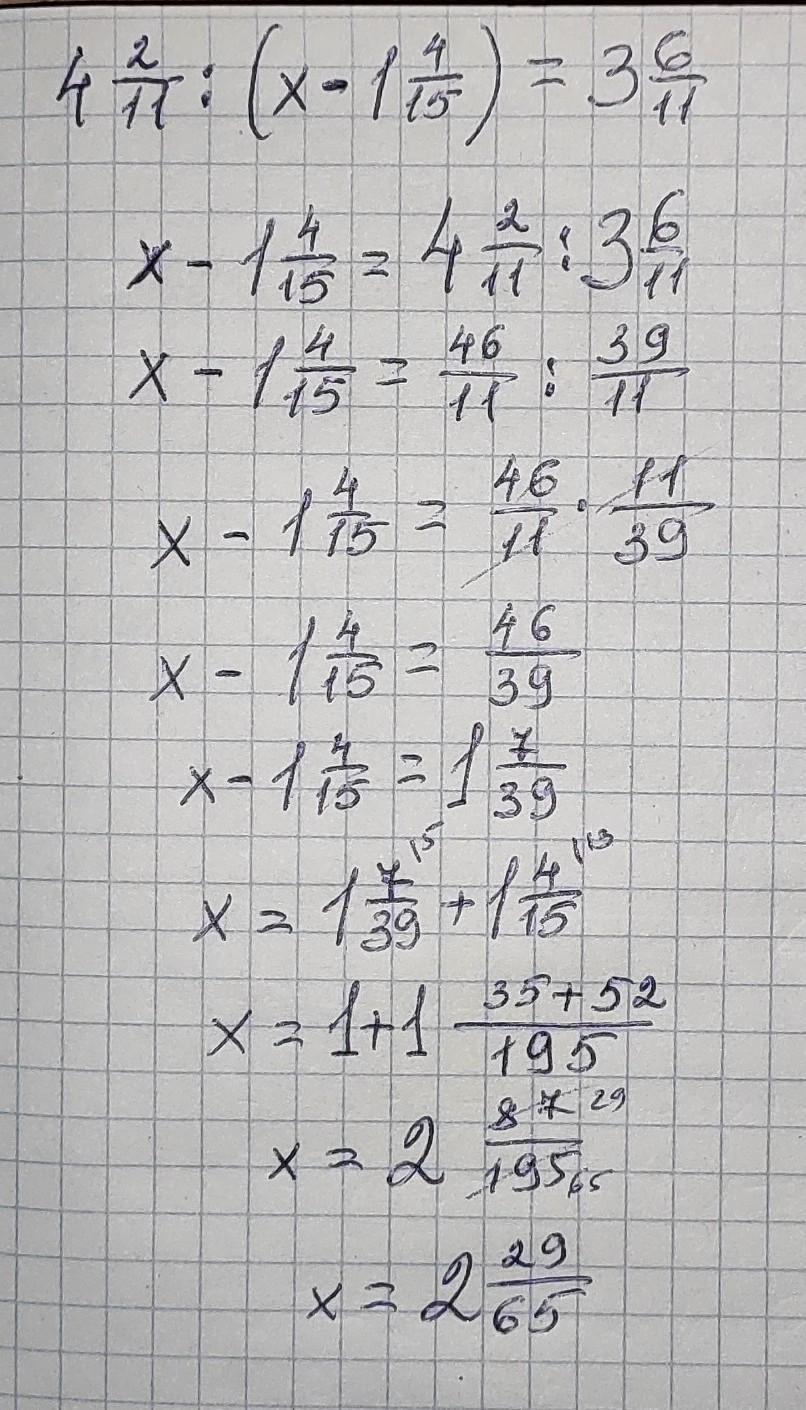 4 2/11 : (x - 1 4/15) = 3 6/11
x - 1 4/15 = 4 2/11 : 3 6/11
x - 1 4/15 = 46/11 : 39/11
x - 1 4/15 = 46/11 · 11/39
x - 1 4/15 = 46/39
x - 1 4/15 = 1 7/39
x = 1 7/39 \15 + 1 4/15 \13
x = 1+1 35+52/195
x = 2 87/195 29 65
x = 2 29/65